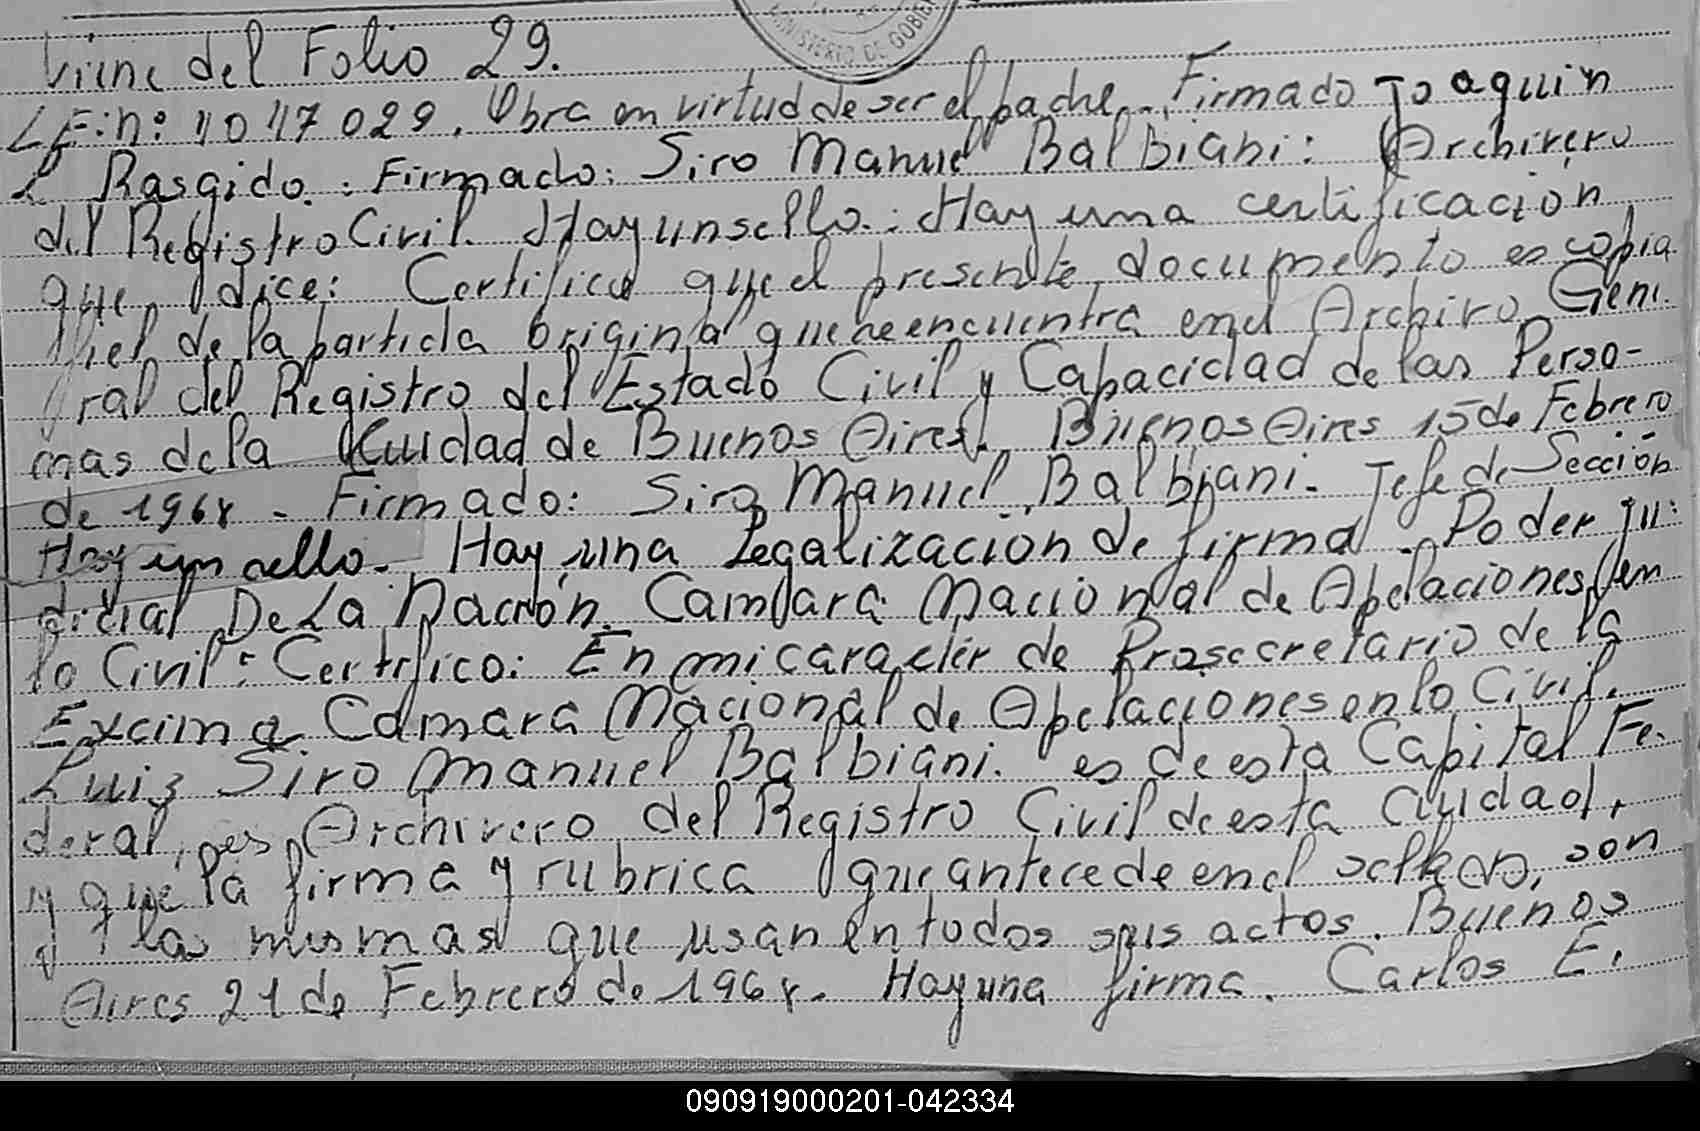 MINISTERIO DE GOBIER
Viene del Folio 29.
L E: n: 4047029. Obra en virtud de ser el padre. Firmado Joaquin
L Rasgido. Firmado: Siro Manuel Balbiani: Archivero
del Registro Civil. Hay un sello.: Hay una certificación
que dice: Certifico que el presente documento es copia
fiel de la partida original que se encuentra en el Archivo Gene
ral del Registro del Estado Civil y Capacidad de las Perso-
nas de la Ciudad de Buenos Aires. Buenos Aires 15 de Febrero
de 1968 - Firmado: Siro Manuel Balbiani - Jefe de Sección
Hay un sello. Hay una Legalización de firma. Poder Ju:
dicial De La Nación. Camara Nacional de Apelaciones en
lo Civil: Certifico: En mi caracter de Prosecretario de la
Excima Camara Nacional de Apelaciones en lo Civil.
Luis Siro Manuel Balbiani. es de esta Capital Fe.
deral, es Archivero del Registro Civil de esta Ciudad,
y que la firma y rubrica que antecede en el son
las mismas que usan en todos sus actos. Buenos
Aires 21 de Febrero de 1968. Hay una firma. Carlos E.
090919000201-042334